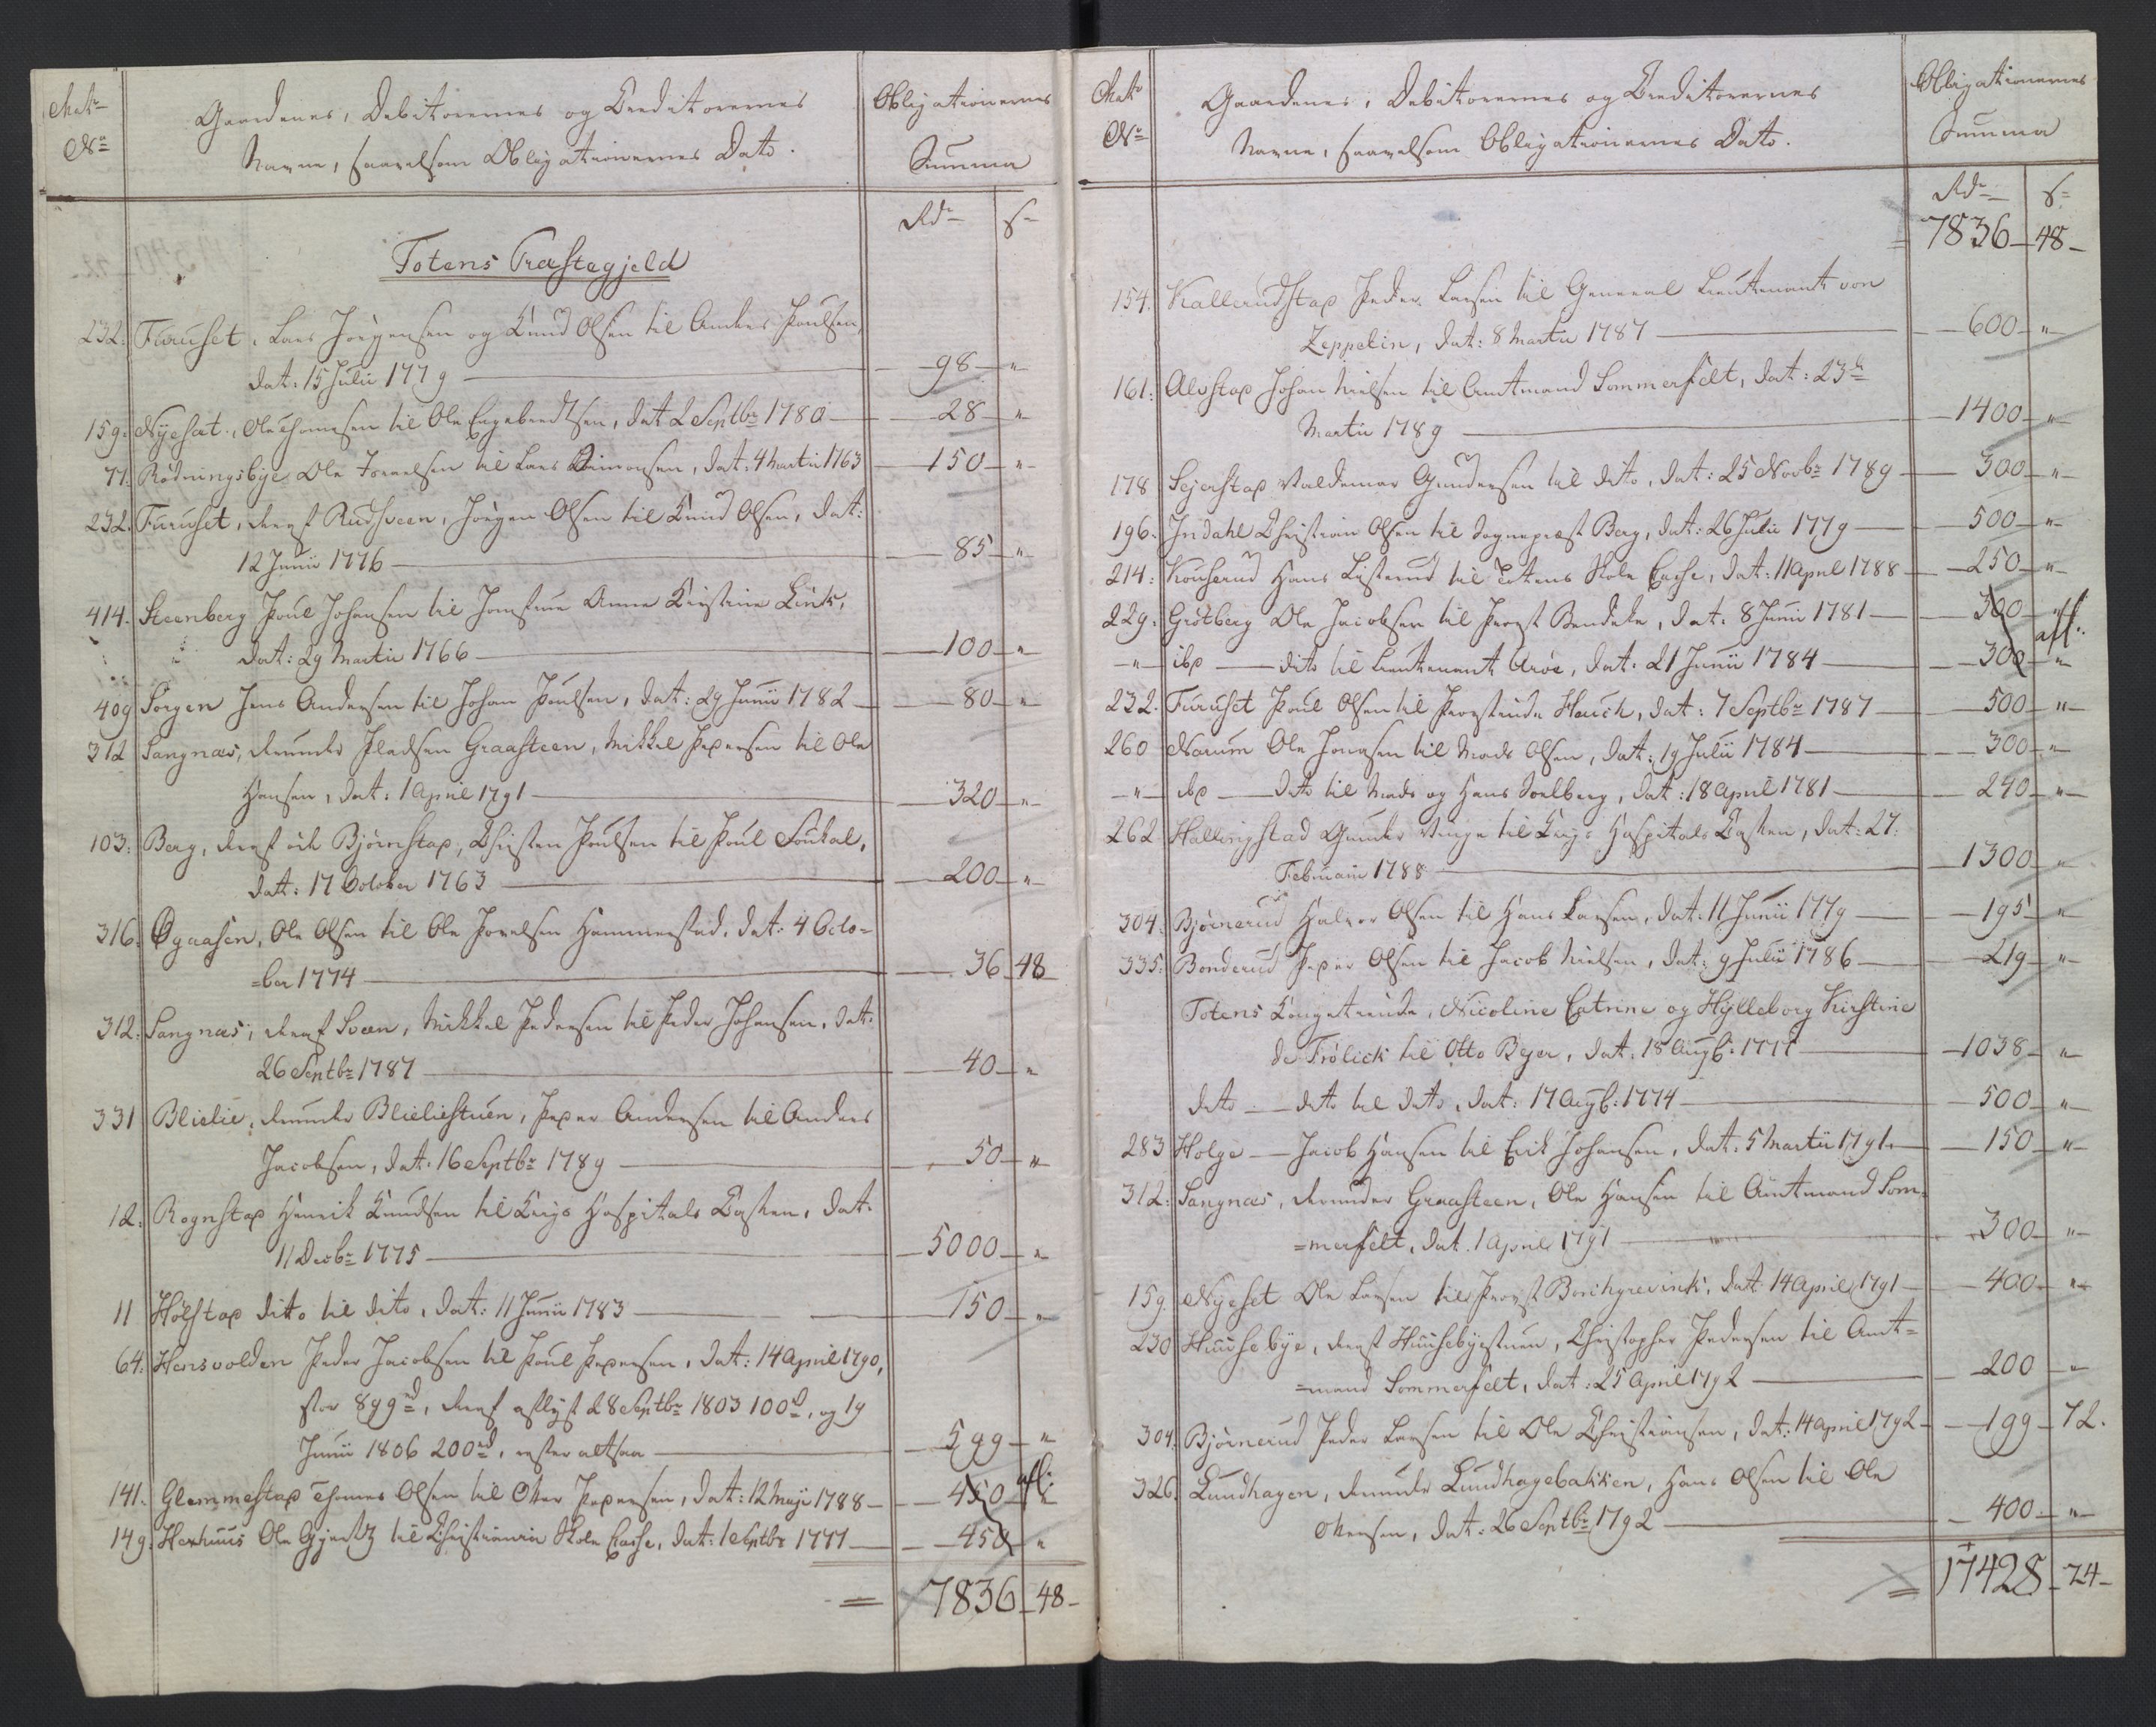 Matr
No
Gaardenes, Debitorernes og Creditorernes
Navne, saavelsom Obligationernes Dato.
Obligationernes
Summa
Rdr s
Totens Præstegjeld
232. Furuset, Lars Jørgensen og Knud Olsen til Anders Poulsen,
dat: 15 Julii 1779 98 "
159. Nyeset, Ole Thomesen til Ole Engebredtsen, dat 2 Septbr 1780 28 "
77. Rødningsbye Ole Iversen til Lars Simonsen, dat: 4 Martii 1763 150 "
232. Furuset, deraf Rudsveen, Jørgen Olsen til Knud Olsen, dat:
12 Junii 1776 85 "
414. Steenberg Poul Johansen til Jomfrue Anne Kirstine Link,
dat: 29 Martii 1766 100 "
409 Sorgen Jens Andersen til Johan Poulsen, dat: 29 Junii 1782 80 "
312 Sangnæs, derunder Pladsen Graasteen, Mikkel Pedersen til Ole
Hansen, dat: 1 April 1791 320 "
103. Berg, deraf øde Bjørnstap, Christen Poulsen til Poul Soukal,
dat: 17 October 1763 200 "
316. Øgaasen, Ole Olsen til Ole Povelsen Hammerstad, dat: 4 Octo=
=ber 1774 36 48
312. Sangnæs, deraf Sveen, Mikkel Pedersen til Peder Johansen, dat.
26 Septbr 1787 40 "
331 Blielie, derunder Blieliestuen, Peder Andersen til Anders
Jacobsen, dat: 16 Septbr 1789 50 "
12. Rognstap Henrik Knudsen til Krigs Hospitals Cassen, dat.
11 Decbr 1775 5000 "
11 Hølstap dito til dito, dat: 11 Junii 1783 150 "
64. Hensvolden Peder Jacobsen til Poul Pedersen, dat: 14 April 1790,
stor 899 rd, deraf aflyst 28 Septbr 1803 100 rd, og 19
Junii 1806 200 rd, rester altsaa 599 "
141. Glemmestap Thomes Olsen til Peder Pedersen, dat: 12 Maji 1788 450 afl:
149. Hexhuus Ole Gjertz til Christiania Skole Casse, dat: 1 Septbr 1777 450 "
= 7836 48
Matr
No
Gaardenes, Debitorernes og Creditorernes
Navne, saavelsom Obligationernes Dato.
Obligationernes
Summa
Rdr s
= 7836 48
154. Kallerudstap Peder Larsen til General Lieutenant von
Zeppelin, dat: 8 Martii 1787 600 "
161. Alvstap Johan Nielsen til Amtmand Sommerfelt, dat: 23de
Martii 1789 1400 "
178 Sejerstap Valdemar Gundersen til dito, dat: 25 Novbr 1789 300 "
196. Indahl Christian Olsen til Sognepræst Berg, dat: 26 Julii 1779 500 "
214: Kouserud Hans Listerud til Totens Skole Casse, dat: 11 April 1788 250 "
229. Grøtberg Ole Jacobsen til Provst Bendeke, dat. 8 Junii 1781 300 "
" ibd dito til Lieutenant Arøe, dat: 21 Junii 1784 300 afl: "
232. Furuset Poul Olsen til Provstinde Hauch, dat: 7 Septbr 1787 500 "
260 Narum Ole Jonasen til Mads Olsen, dat: 19 Julii 1784 300 "
" ibd dito til Mads og Hans Soelberg, dat: 18 April 1781 240 "
262 Hallingstad Gunder Vinge til Krigs Hospitals Cassen, dat: 27.
Februarii 1788 1300 "
304. Bjørnerud Halvor Olsen til Hans Larsen, dat. 11 Junii 1779 195 "
335. Bonderud Peder Olsen til Jacob Nielsen, dat: 9 Julii 1786 219 "
Totens Kongetiende, Nicoline Catrine og Hylleborg Kirstine
de Frölick til Otto Bejer, dat. 18 Augs: 1777 1038 "
dito dito til dito, dat: 17 Augs: 1774 500 "
283 Holge Jacob Hansen til Erik Johansen, dat: 5 Martii 1791 150 "
312. Sangnæs, derunder Graasteen, Ole Hansen til Amtmand Som=
=merfelt, dat. 1 April 1791 300 "
159. Nyeset Ole Larsen til Provst Borchgrevink, dat 14 April 1791 400 "
230 Huusebye, deraf Huusebyestuen, Christopher Pedersen til Amt=
=mand Sommerfelt, dat: 25 April 1792 200 "
304. Bjørnerud Peder Larsen til Ole Christiansen, dat: 14 April 1792 199 72.
326. Lundhagen, derunder Lundhagebakken, Hans Olsen til Ole
dat: 26 Septbr 1792 400 "
= 17428 24